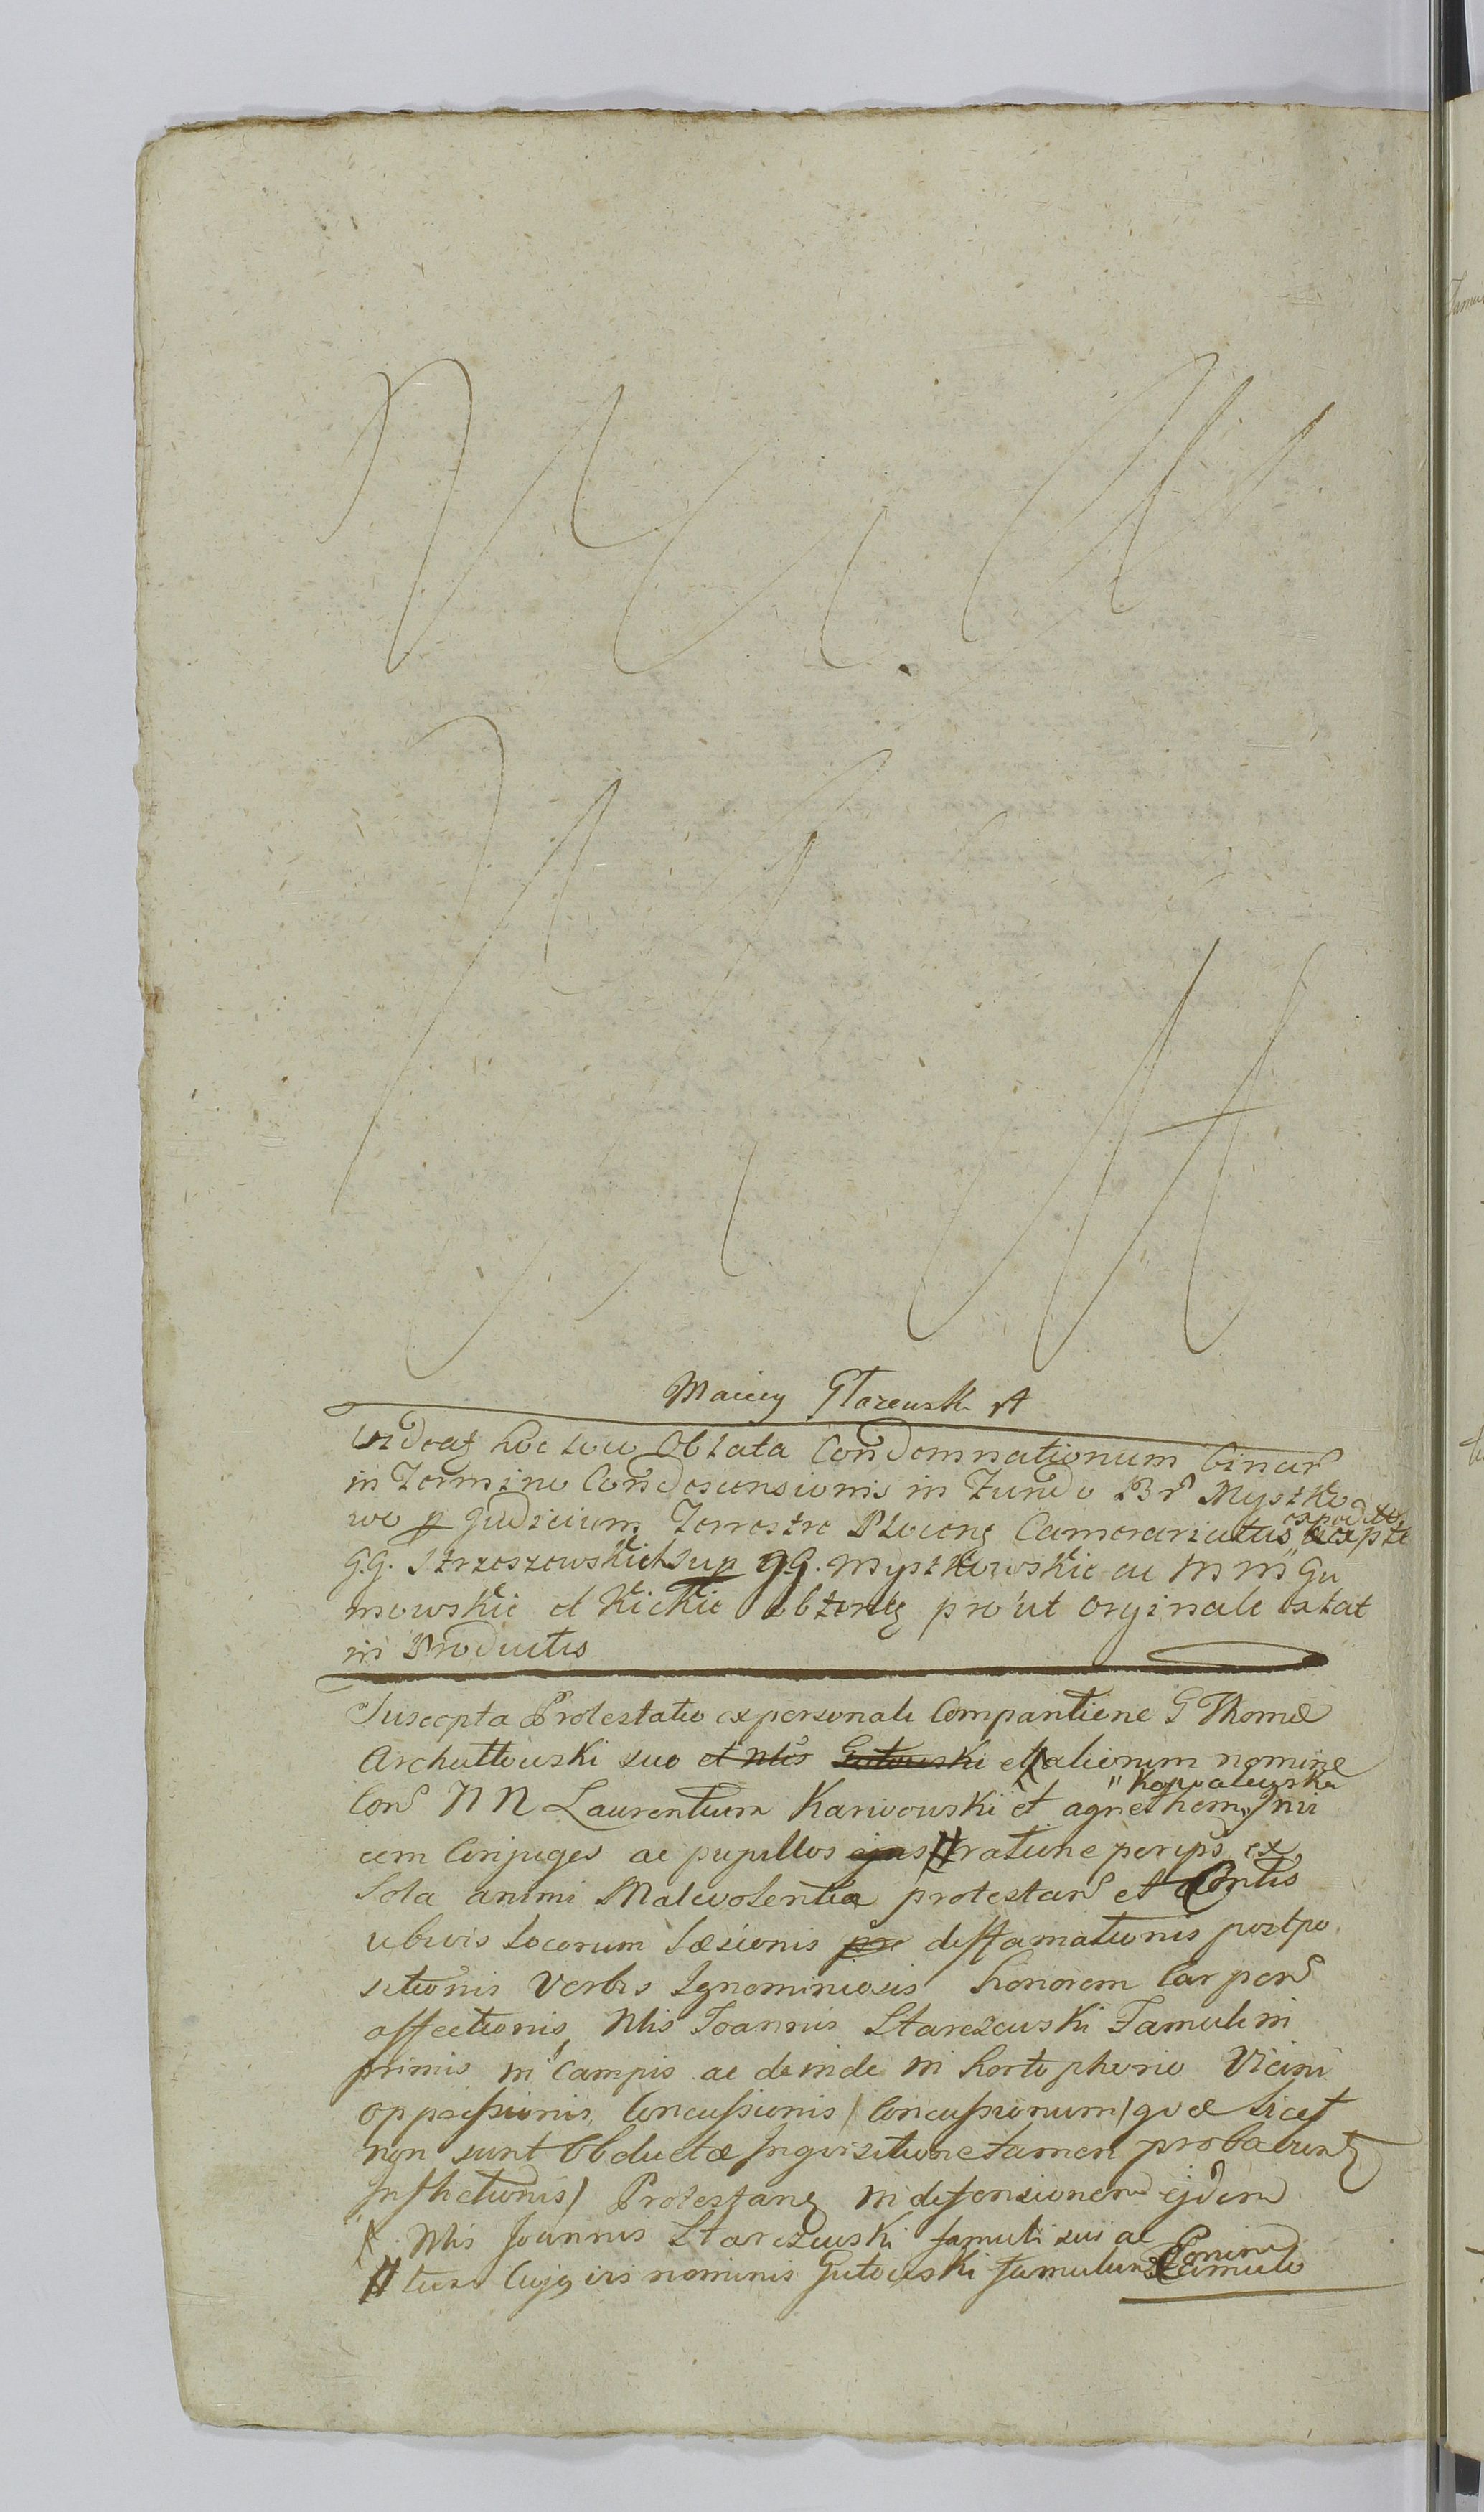 Maciey Głazewski
Videat hoc loco Oblata Condemnationum binar
in Termino Condescensionis in Fundo Br Myszko
wo p Judicium Terrestre Plocens Camerariatus expedito
GG. Strzeszewskich sup GG. Myszkowskie ac M M Gu
mowskie et Kickie obtent pro'ut Orginale extat
in Productis
Suscepta Protestatio ex personali Comparitione G Thomæ
Archuttowski suo et Nlis Gutowski et aliorum nomine
Con N N Laurentium Karwowski et agnethem Kowalewska Invi
cem Conjuges ac pupillos ejus ratione per ips ex
Sola animi Malevolentia protestan et
ubivis Locorum Læsionis pre deffamationis postpo
sitionis Verbis Ignominiosis honorem Carpen
affectionis Nlis Joannis Starczewski Famuli in
primis in Campis ac deinde in horto Vicini
oppressionis, Concussionis / Concussionum / qvæ licet
non sunt Obductæ Inqvisitione tamen probabunt
Inflictionis / Protestans in defensionem ejdem
Nlis Joannis Starczewski famuli sui ac
tum Cujg iis nominis Gutowski famulum Famulo